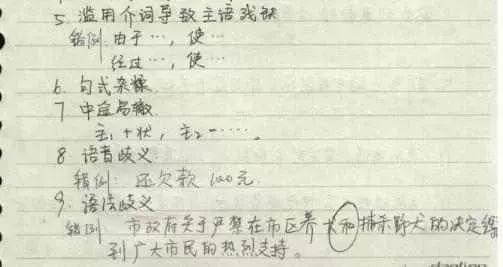 5. 滥用介词导致主语残缺
错例: 由于…，使…
经过…，使…
6. 句式杂糅
7 中途易辙
主₁ + 状，主₂ - ……。
8. 语音歧义
错例: 还欠款 100元.
9. 语法歧义
错例 市政府关于严禁在市区养犬和捕杀野犬的决定得
到广大市民的热烈支持。